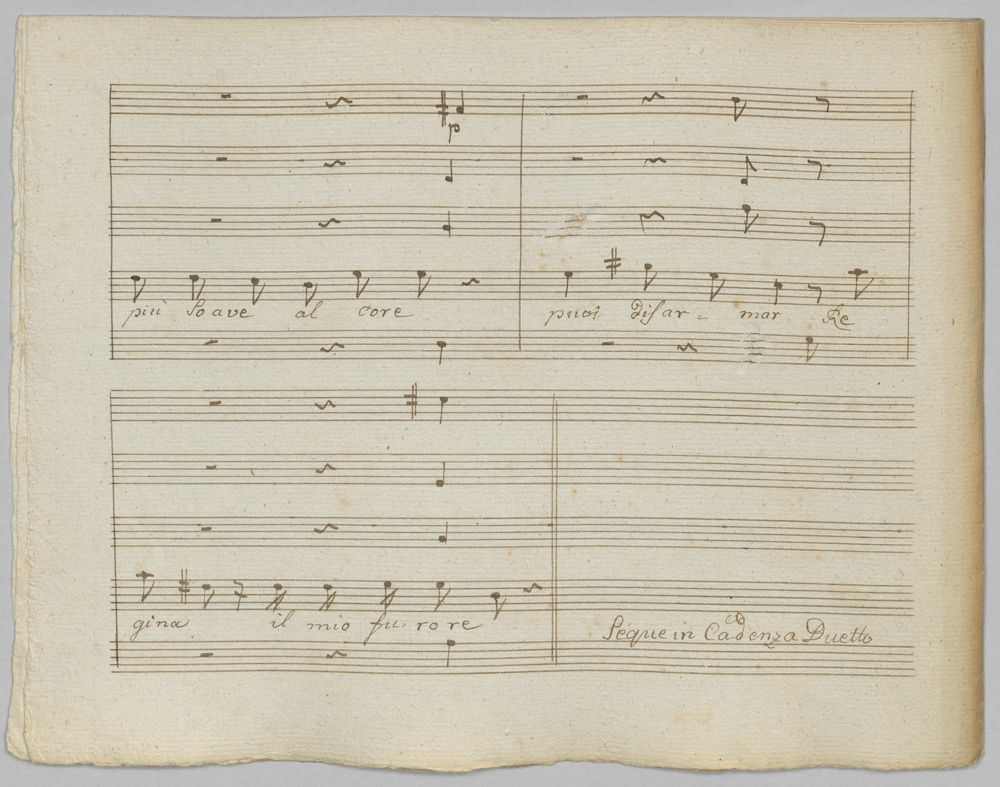 p
più soave al core puoi disar= mar Re
gina il mio fu=rore
Segue in Cadenza Duetto